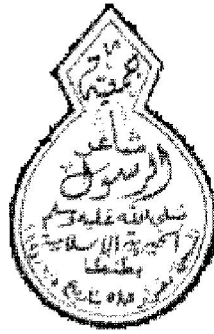 جمعية
شاعر
الرسول
صلى الله عليه وسلم
الخيرية الإسلامية
بطنطا